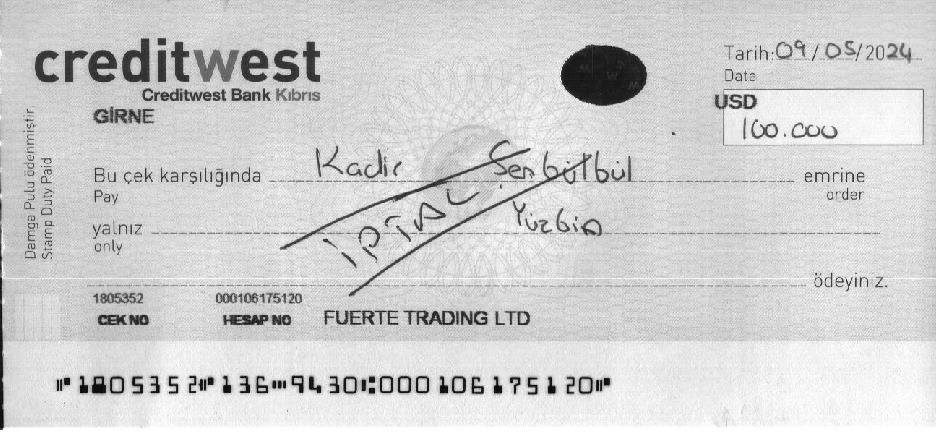 creditwest
Creditwest Bank Kıbrıs
GİRNE
Tarih: 09/05/2024
Date
USD
100.000
Damga Pulu ödenmiştir
Stamp Duty Paid
Bu çek karşılığında Kadir Şenbülbül emrine
Pay order
yalnız Yüzbin
only
İPTAL
ödeyiniz.
1805352 000106175120
CEK NO HESAP NO FUERTE TRADING LTD
⑈1805352⑈136⑉9430⑆000106175120⑈